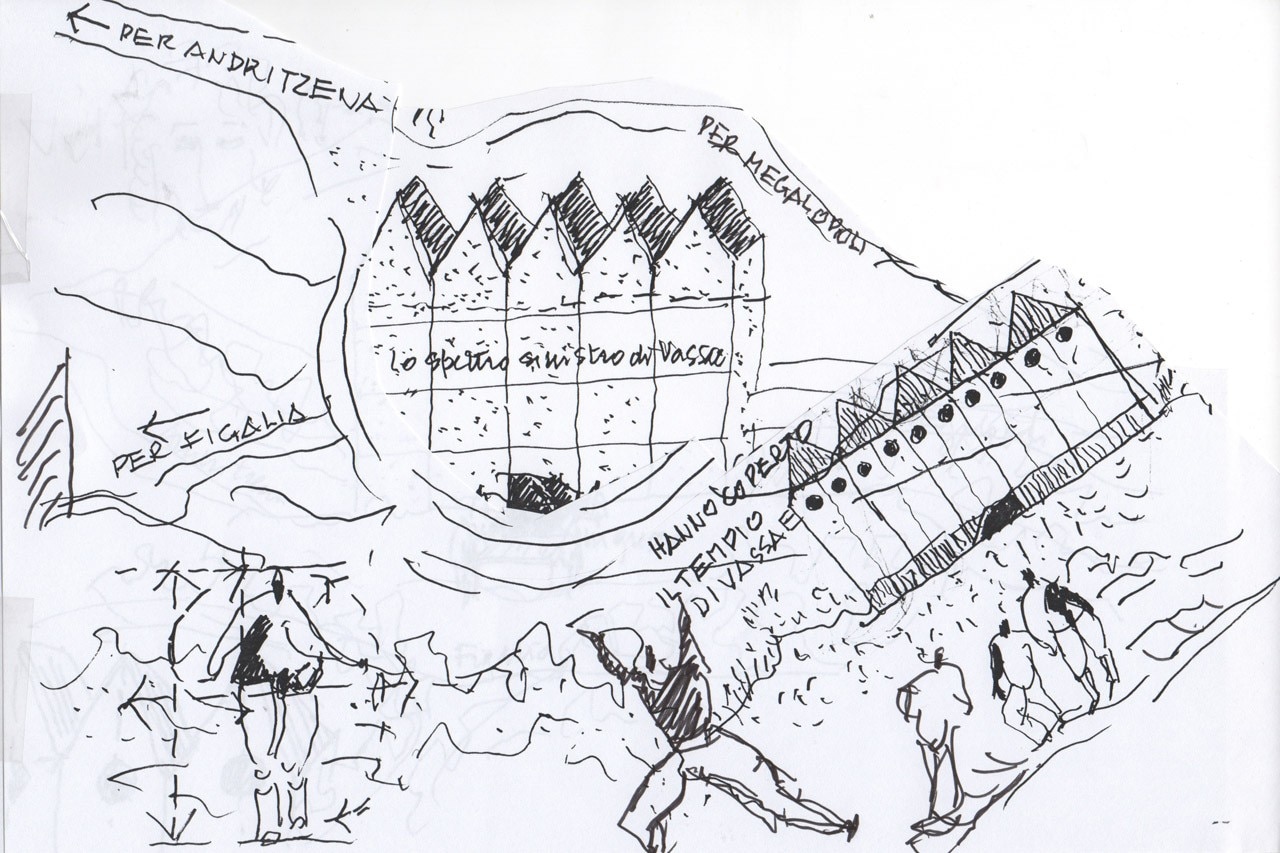 PER ANDRITZENA
PER MEGALOPOLI
Lo spettro sinistro di Vassae
PER FIGALIA
HANNO COPERTO
IL TEMPIO
DI VASSAE